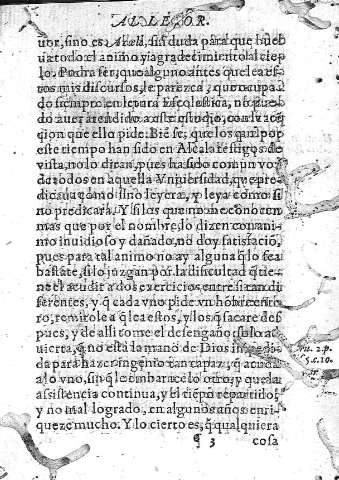 AL LECTOR.
uor, sino es Aueli, sin duda para que buel
ua todo el animo y agradecimiento al cie-
lo. Podra ser, que alguno antes que lea es-
tos mis discursos, le parezca, que ocupa-
do siempre en letura Escolastica, no pue-
do auer atendido a este estudio, con la aten
cion que ello pide. Biē se, que los que por
este tiempo han sido en Alcala testigos de
vista, no lo diran, pues ha sido comun voz
de todos en aquella Vniuersidad, que pre-
dicaua como si no leyera, y leya como si
no predicara. Y si los que no me conocen
mas que por el nombre, lo dizen con ani-
mo inuidioso y dañado, no doy satisfaciō,
pues para tal animo no ay alguna q̄ lo sea
bastāte, si lo juzgan por la dificultad q̄ tie-
ne el acudir a dos exercicios, entre si tan di
ferentes, y q̄ cada vno pide vn hōbre ente-
ro, remitole a q̄ lea estos, y los q̄ sacare des
pues, y de alli tome el desengaño (si lo a-
cierta, q̄ no està la mano de Dios impedi-
da para hazer ingenio tan capaz, q̄ acuda
a lo vno, sin q̄ le embarace lo otro, y que la
assistencia continua, y el tiēpo repartido,
y no mal logrado, en algunos años enri-
queze mucho. Y lo cierto es, q̄ qualquiera
¶ 3 cosa
2. p.
5. c. 10.